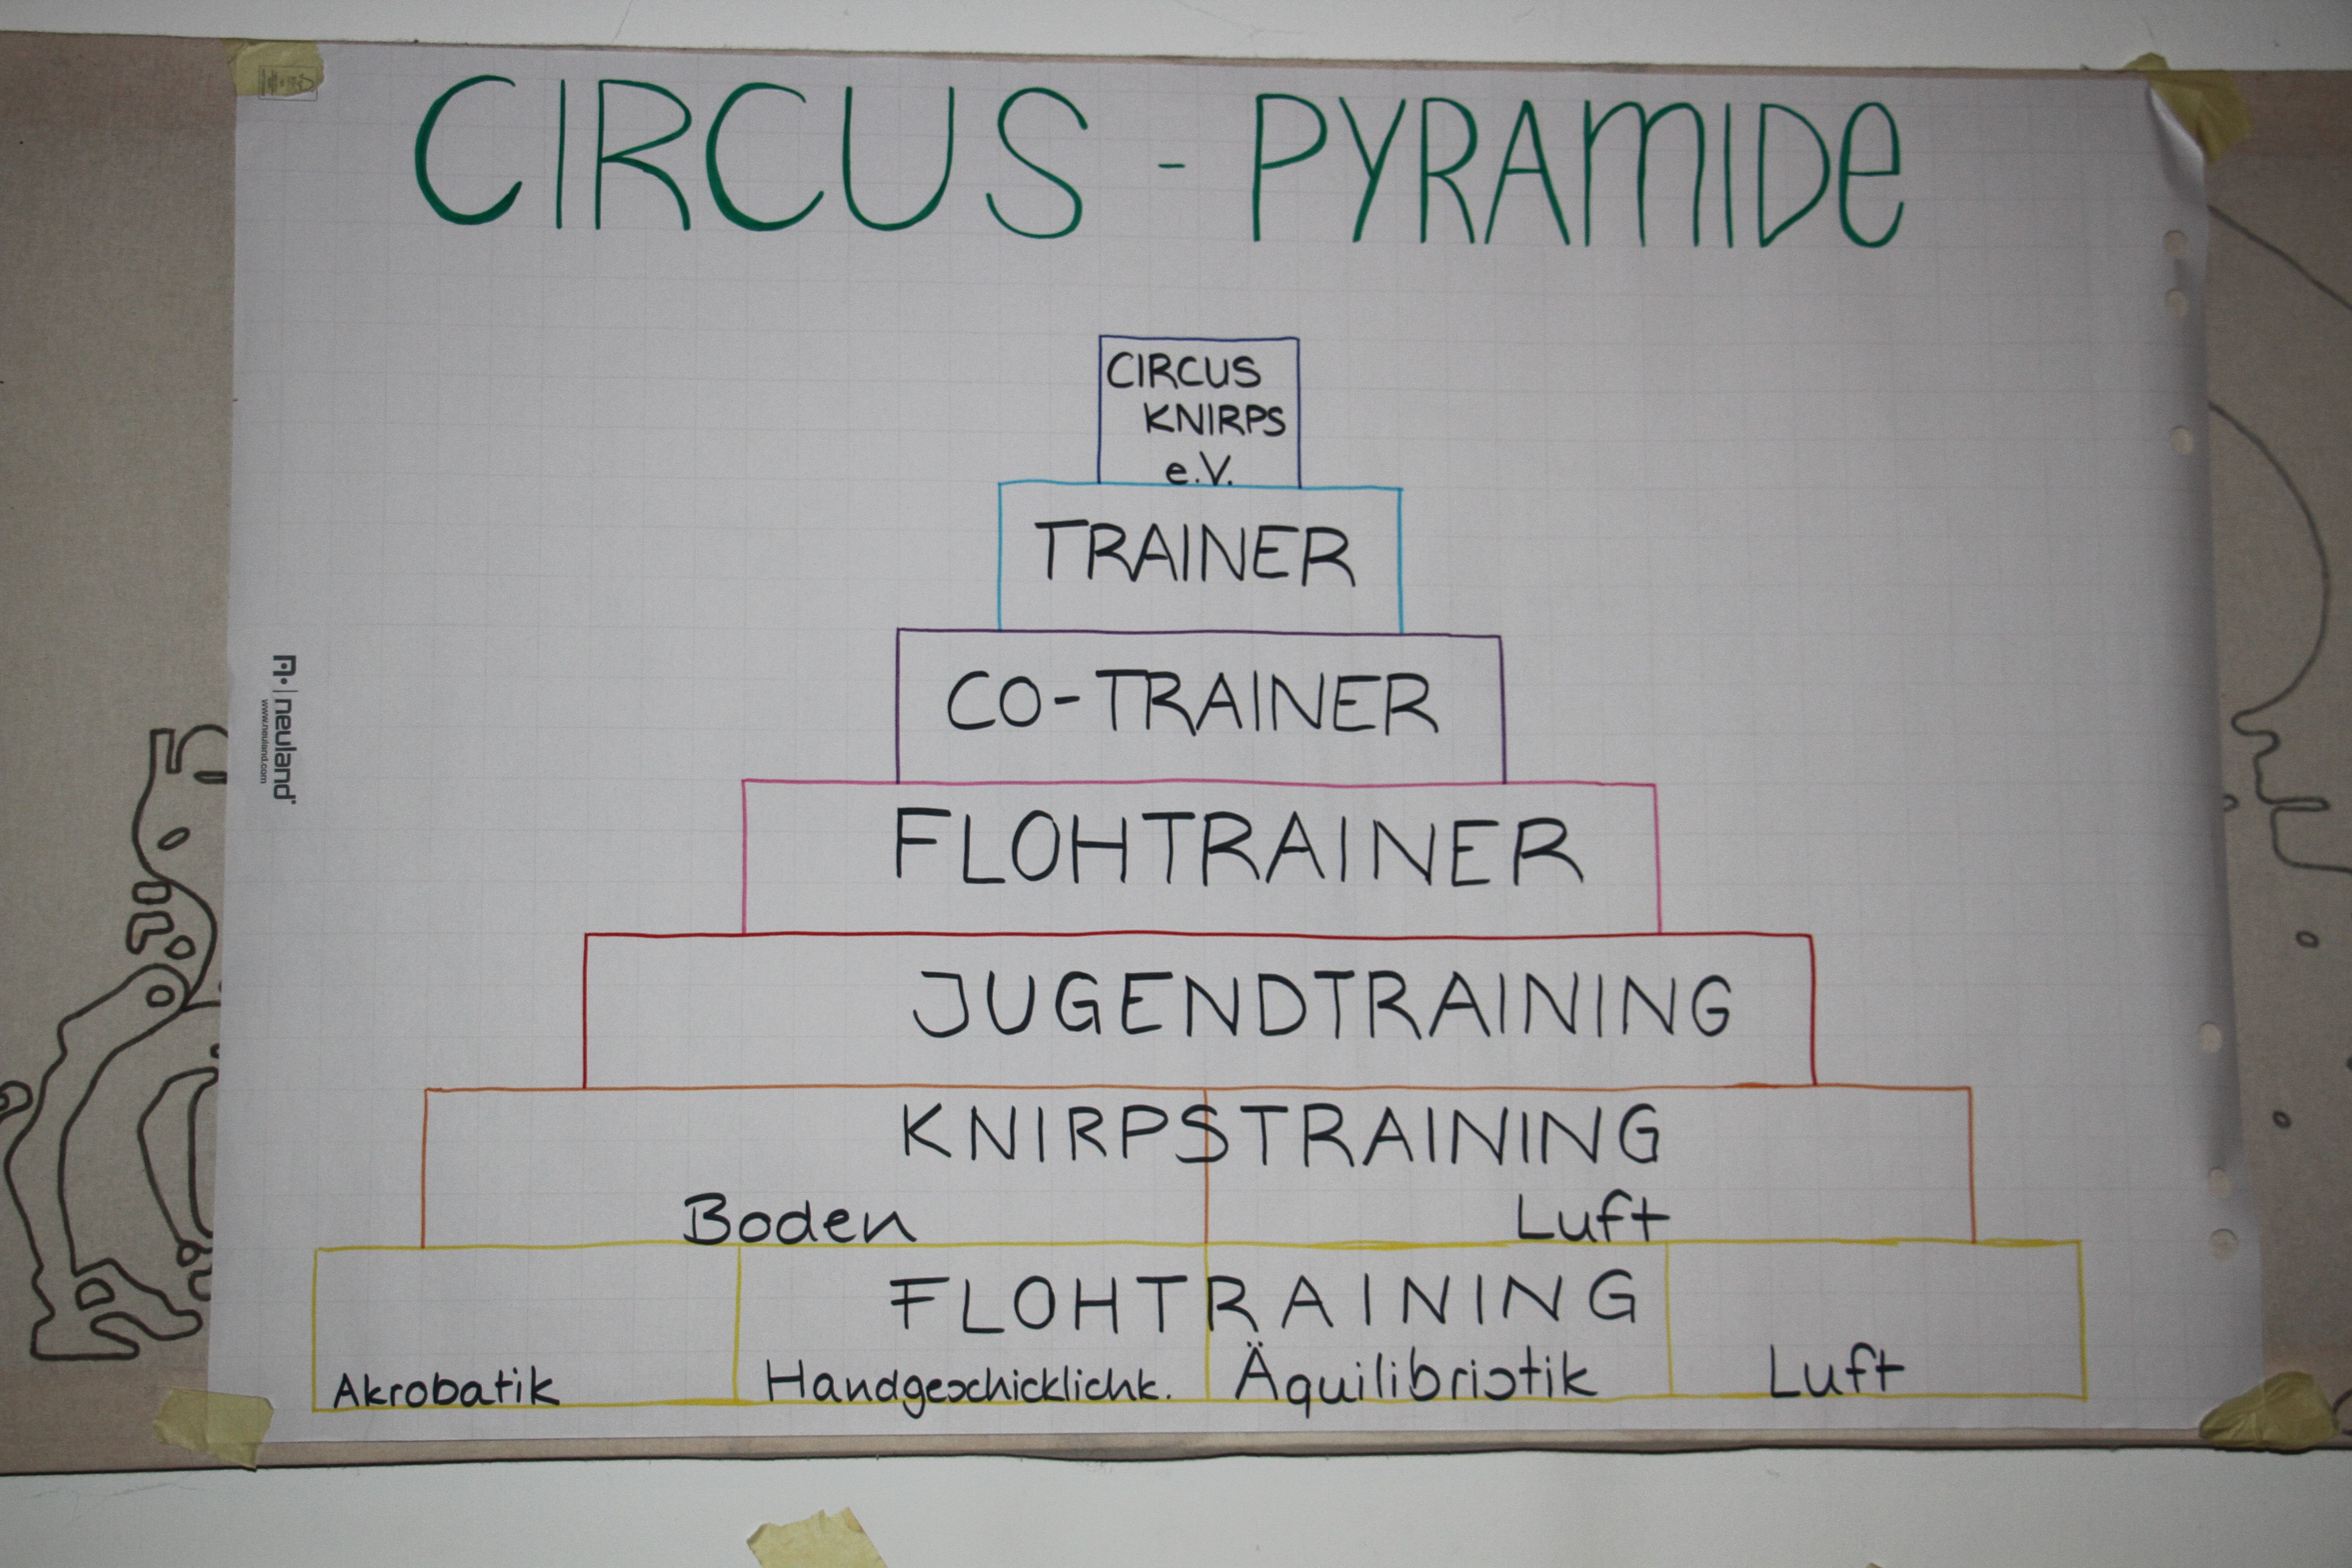 CIRCUS - PYRAMIDE
CIRCUS
KNIRPS
e.V.
TRAINER
CO-TRAINER
FLOHTRAINER
JUGENDTRAINING
KNIRPSTRAINING
Boden Luft
FLOHTRAINING
Akrobatik Handgeschicklichk. Äquilibristik Luft
neuland
www.neuland.com